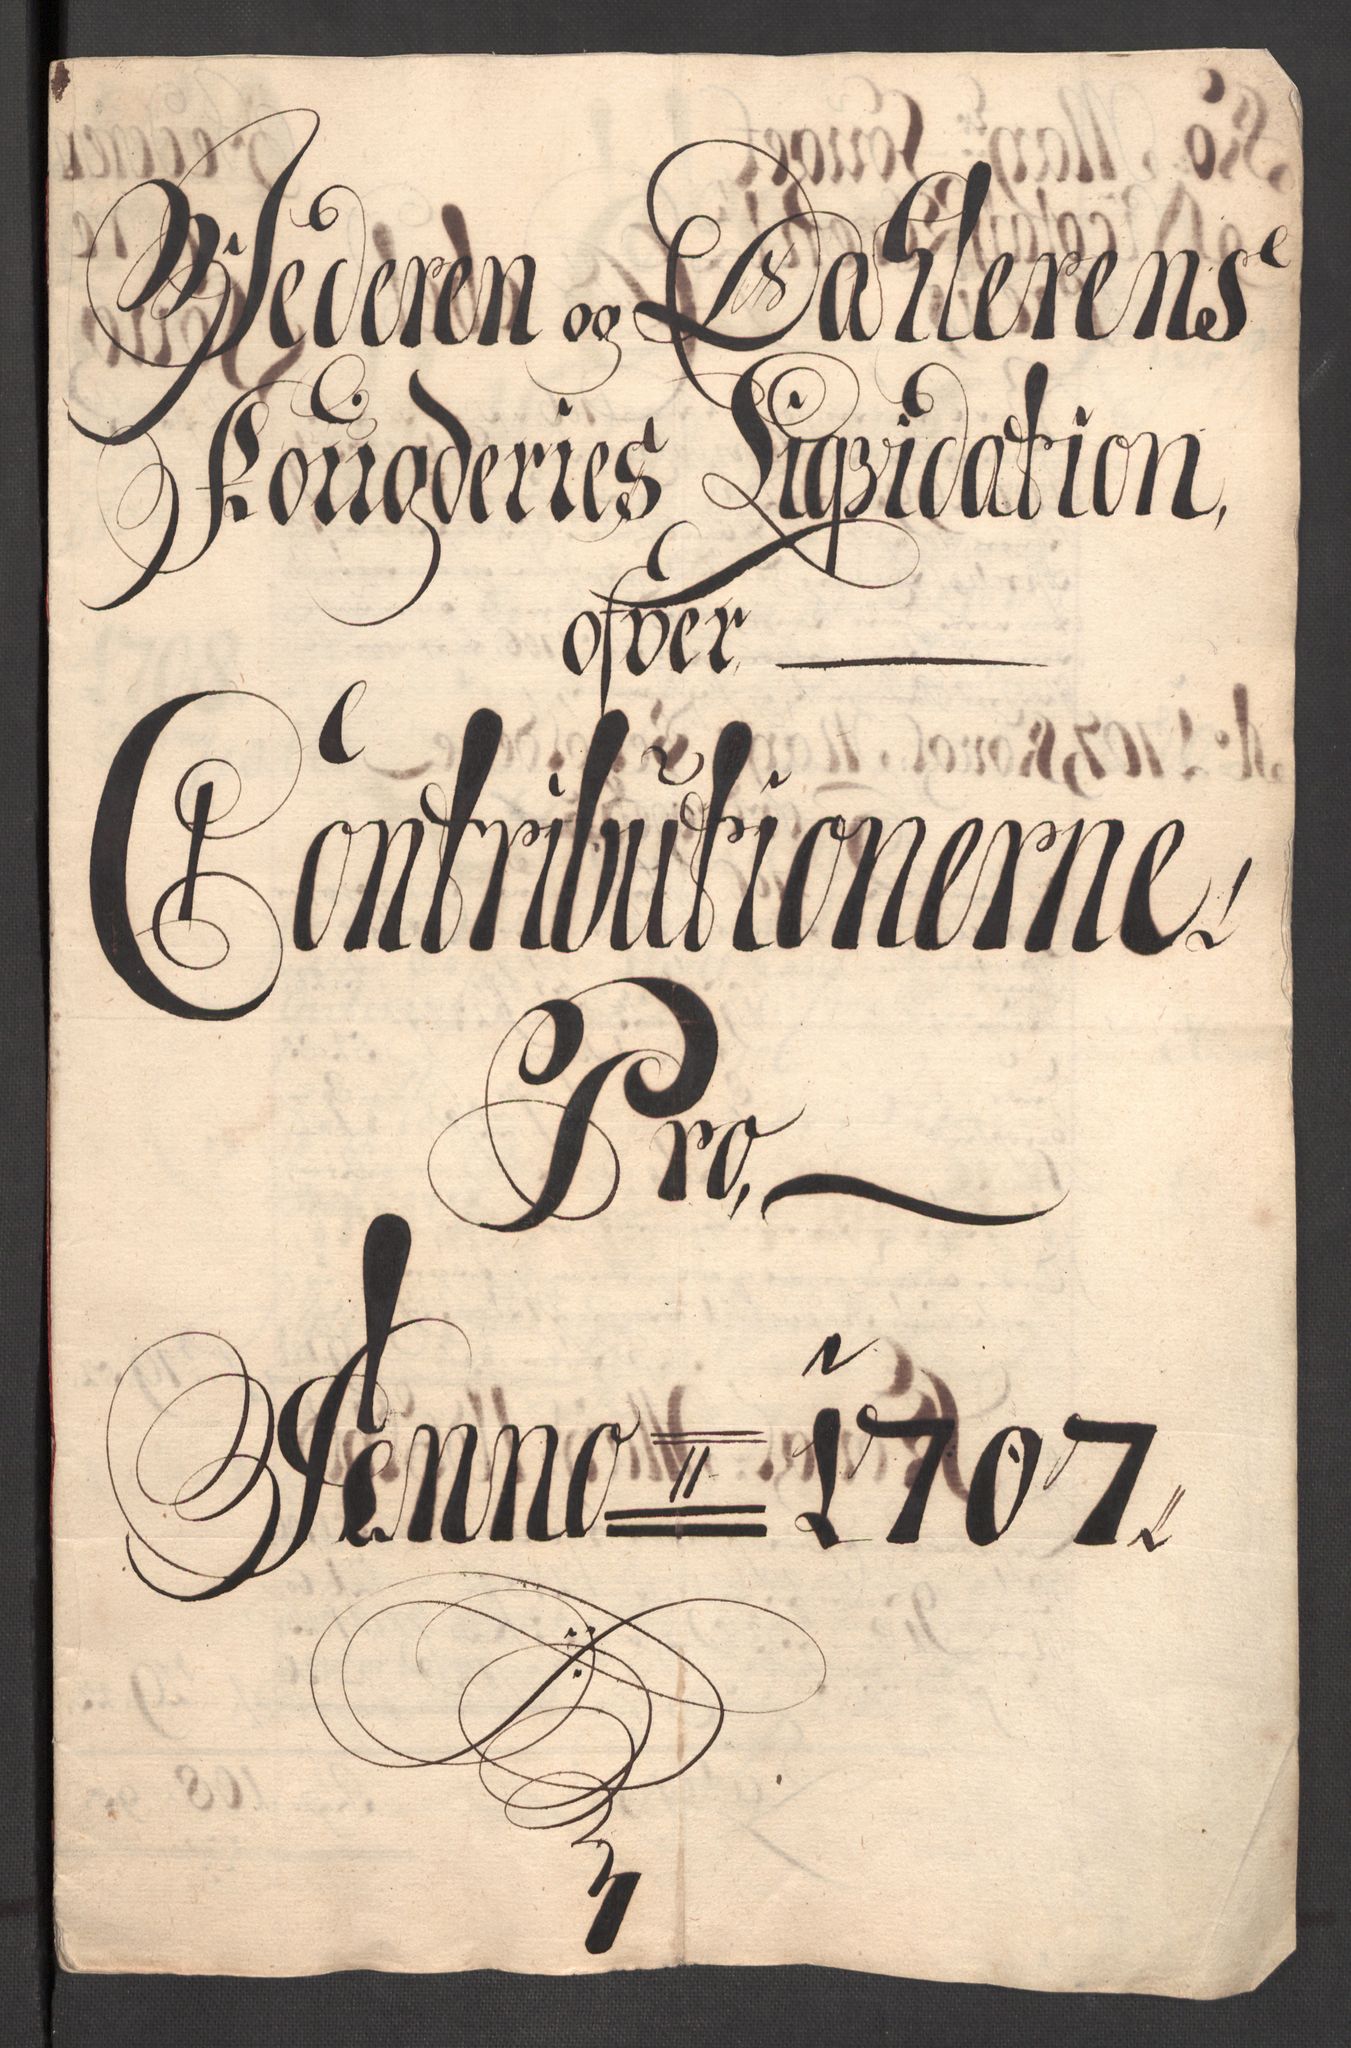 Jederen og Dahlerens
Fougderies Liqvidation,
ofver
Contributionerne
Pro,
Anno = 1707